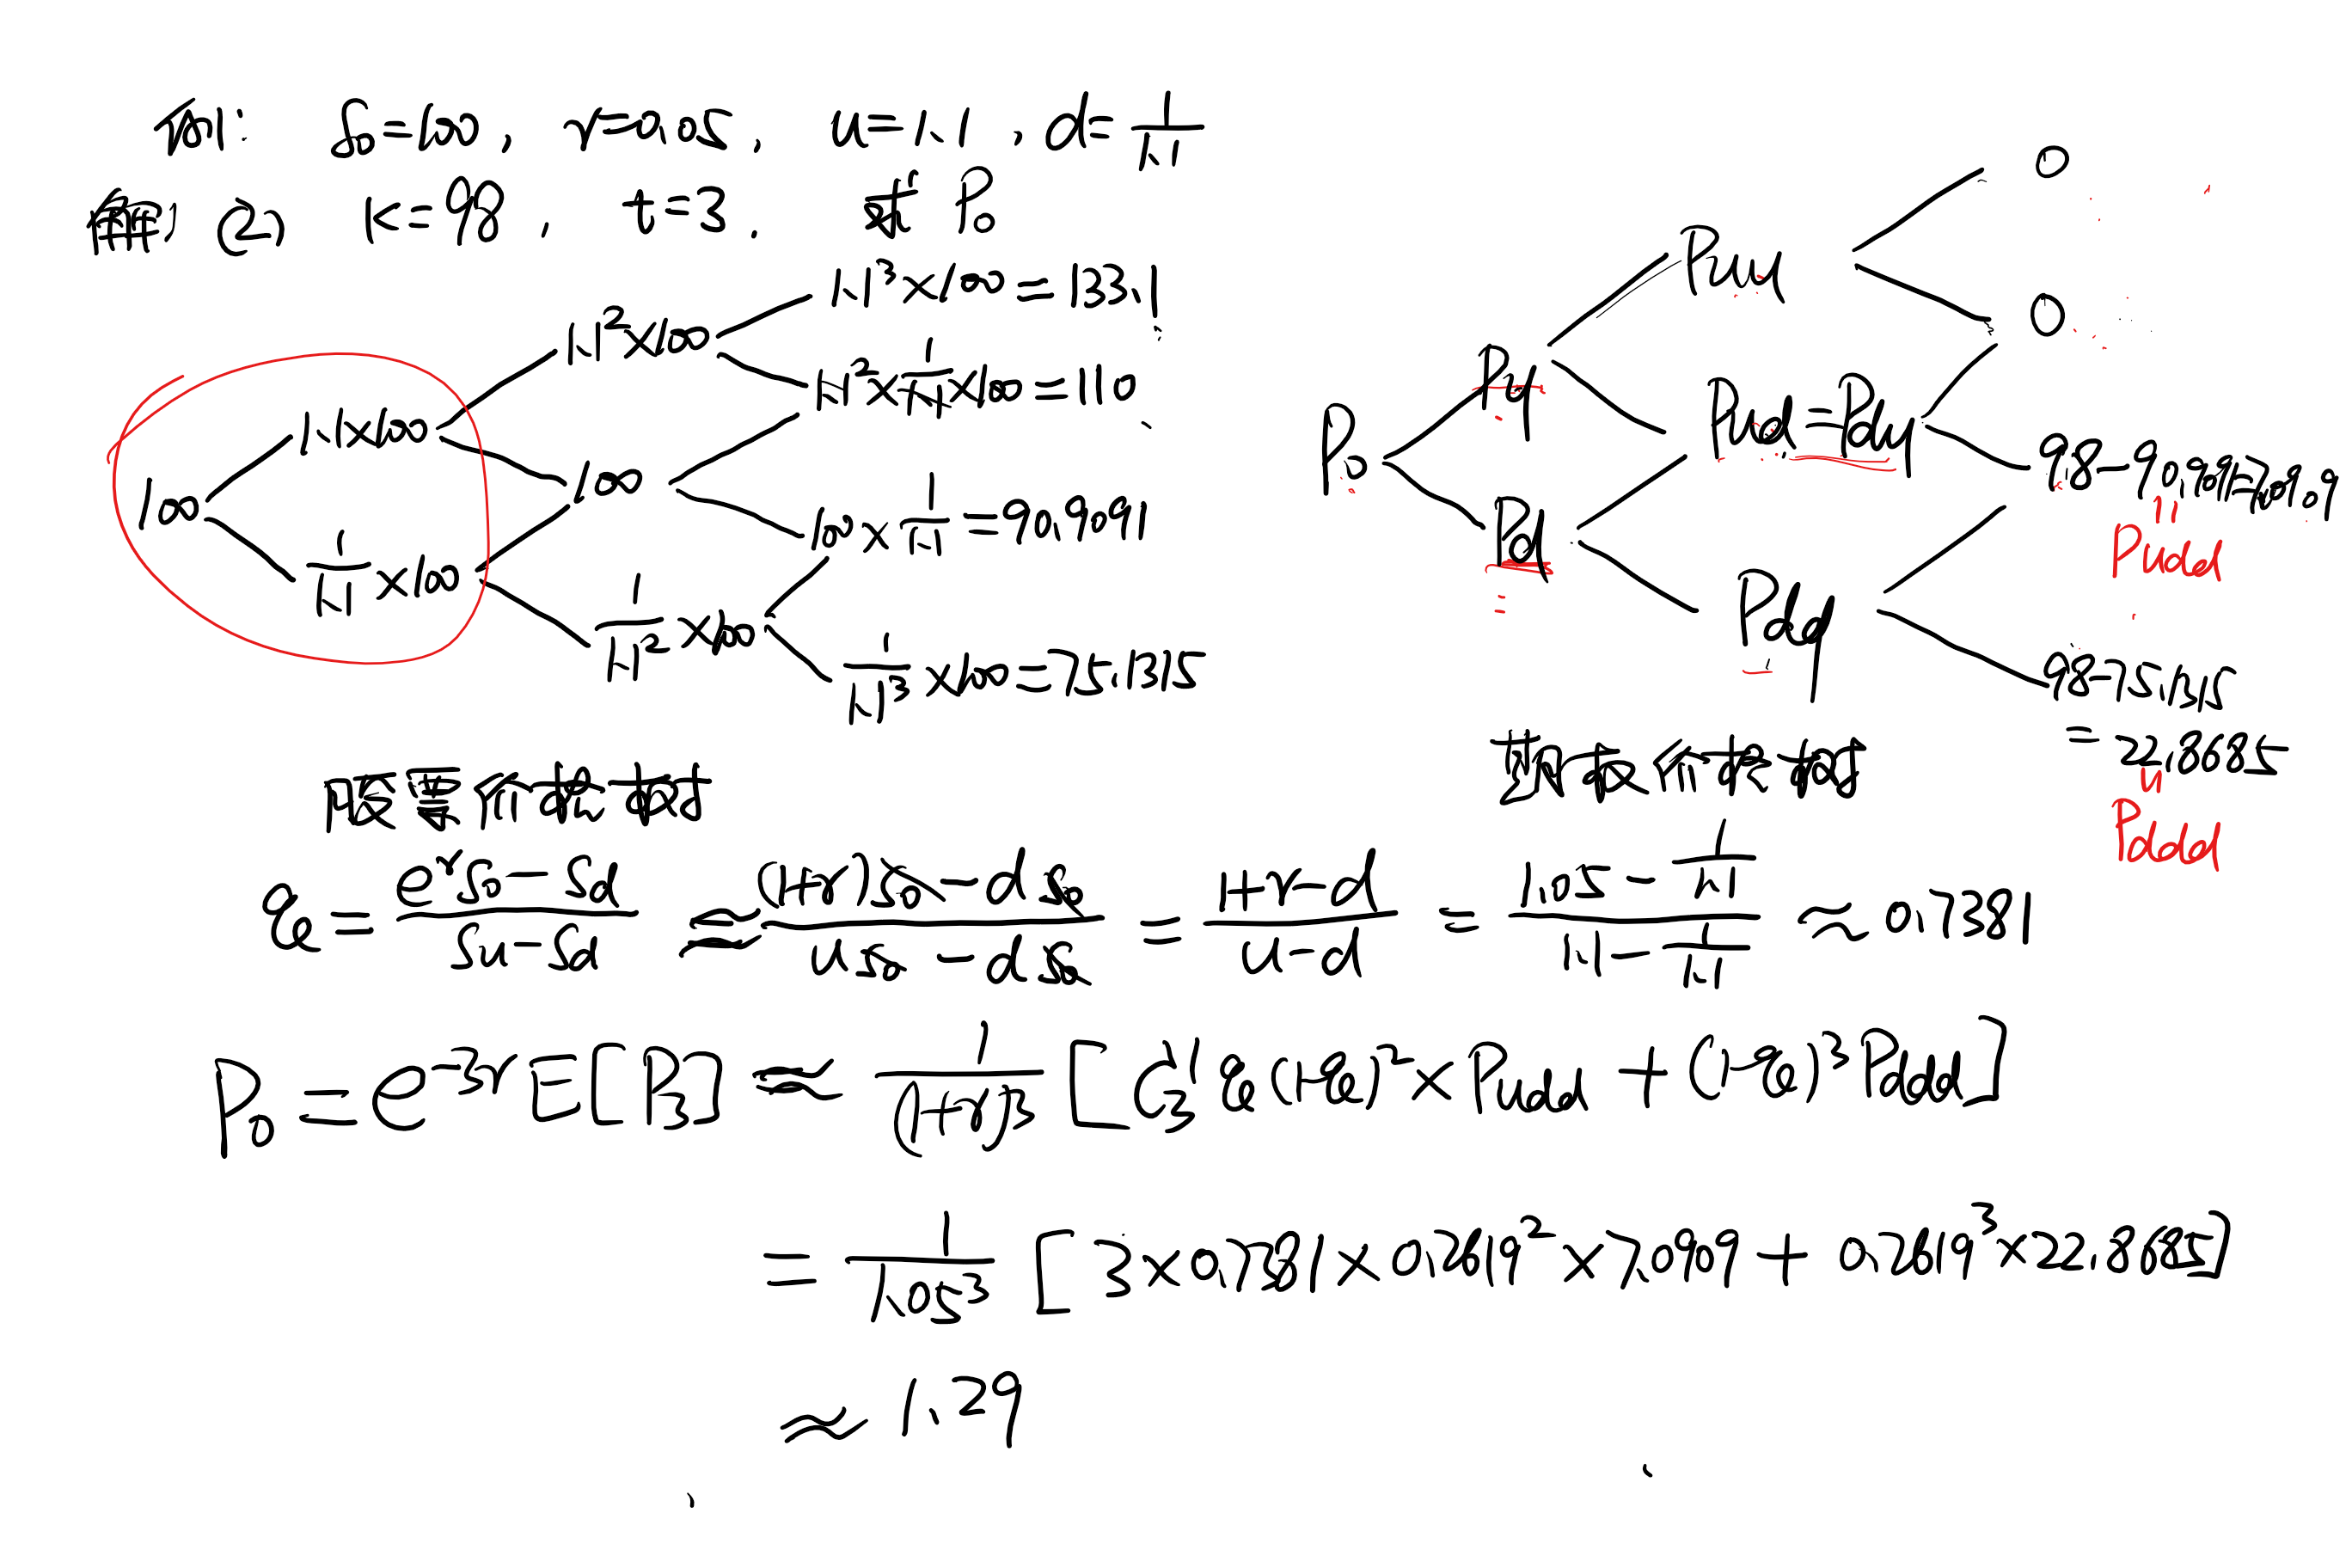 例1: S₀=100, r=0.05, u=1.1, d=1/1.1
② K=98, t=3, 求 P₀
100
1.1×100
1/1.1 ×100
1.1²×100
100
1/1.1² ×100
1.1³×100=133.1
1.1²×1/1.1×100=110
100×1/1.1=90.9091
1/1.1³ ×100=75.1315
股票价格树
P₀
Pu
Pd
Puu
Pud=Pdu
Pdd
0
0
98-90.9091=7.0909
Pudd
98-75.1315
=22.8685
Pddd
期权价格树
q = (eʳS₀-Sd)/(Su-Sd) ≈ ((1+r)S₀-dS₀)/(uS₀-dS₀) = (1+r-d)/(u-d) = (1.05-1/1.1)/(1.1-1/1.1) ≈ 0.7381
P₀ = e⁻³ʳ E[P₃] ≈ 1/(1+r)³ [C₃¹ q(1-q)²×Pudd + (1-q)³Pddd]
= 1/1.05³ [3×0.7381×0.2619²×7.0909 + 0.2619³×22.8685]
≈ 1.29